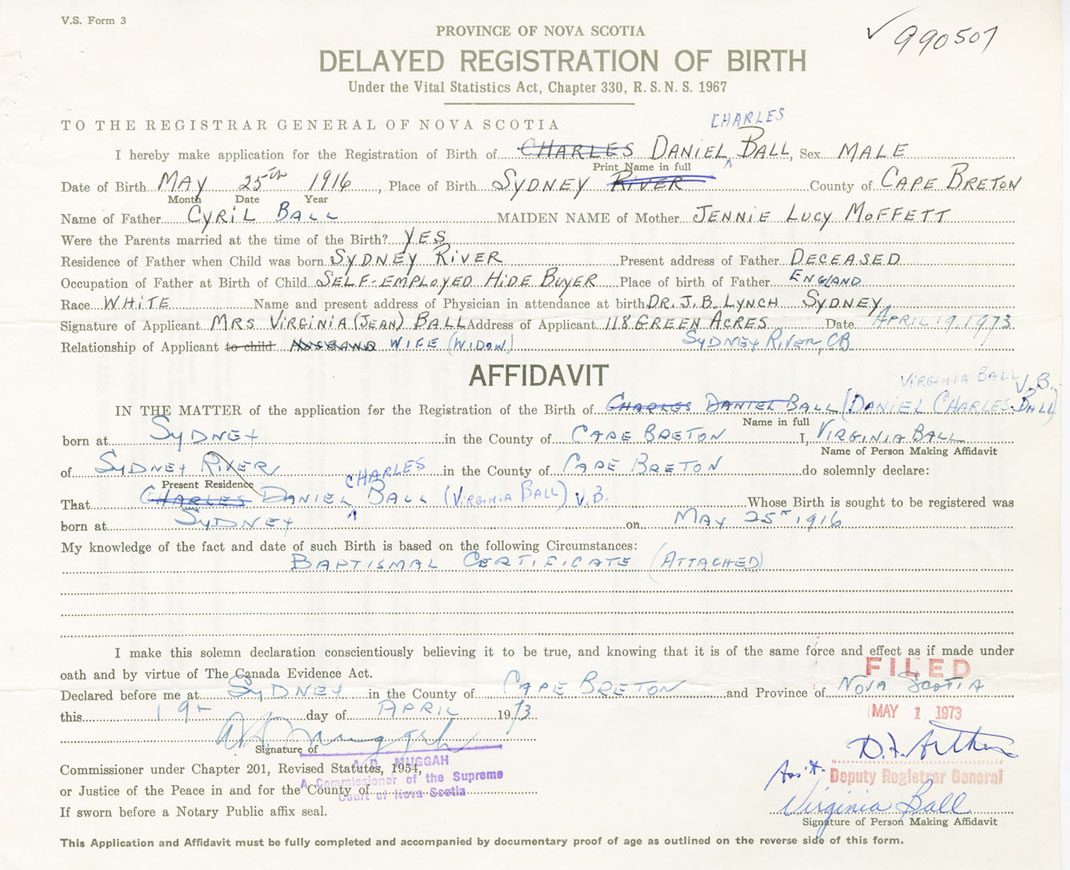 V.S. Form 3
✓990507
PROVINCE OF NOVA SCOTIA
DELAYED REGISTRATION OF BIRTH
Under the Vital Statistics Act, Chapter 330, R. S. N. S. 1967
TO THE REGISTRAR GENERAL OF NOVA SCOTIA
CHARLES
I hereby make application for the Registration of Birth of CHARLES DANIEL ^ BALL, Sex MALE
Print Name in full
Date of Birth MAY 25TH 1916, Place of Birth SYDNEY RIVER County of CAPE BRETON
Month Date Year
Name of Father CYRIL BALL MAIDEN NAME of Mother JENNIE LUCY MOFFETT
Were the Parents married at the time of the Birth? YES
Residence of Father when Child was born SYDNEY RIVER Present address of Father DECEASED
Occupation of Father at Birth of Child SELF-EMPLOYED HIDE BUYER Place of birth of Father ENGLAND
Race WHITE Name and present address of Physician in attendance at birth DR. J.B. LYNCH SYDNEY
Signature of Applicant MRS VIRGINIA (JEAN) BALL Address of Applicant 118 GREEN ACRES Date APRIL 19, 1973
Relationship of Applicant to child HUSBAND WIFE (WIDOW) SYDNEY RIVER, CB
AFFIDAVIT
VIRGINIA BALL V.B.
IN THE MATTER of the application for the Registration of the Birth of CHARLES DANIEL BALL (DANIEL CHARLES BALL)
Name in full
born at SYDNEY in the County of CAPE BRETON I, VIRGINIA BALL
Name of Person Making Affidavit
of SYDNEY RIVER in the County of CAPE BRETON do solemnly declare:
Present Residence
CHARLES
That CHARLES DANIEL ^ BALL (VIRGINIA BALL) V.B. Whose Birth is sought to be registered was
born at SYDNEY on MAY 25TH 1916
My knowledge of the fact and date of such Birth is based on the following Circumstances:
BAPTISMAL CERTIFICATE (ATTACHED)
I make this solemn declaration conscientiously believing it to be true, and knowing that it is of the same force and effect as if made under
oath and by virtue of The Canada Evidence Act.
FILED
Declared before me at SYDNEY in the County of CAPE BRETON and Province of NOVA SCOTIA
this 19th day of APRIL 1973
MAY 1 1973
A D Muggah
Signature of
D. F. Arthur
A. D. MUGGAH
Commissioner under Chapter 201, Revised Statutes, 1954,
A Commissioner of the Supreme
Ass't. Deputy Registrar General
or Justice of the Peace in and for the County of
Court of Nova Scotia
Virginia Ball
If sworn before a Notary Public affix seal.
Signature of Person Making Affidavit
This Application and Affidavit must be fully completed and accompanied by documentary proof of age as outlined on the reverse side of this form.